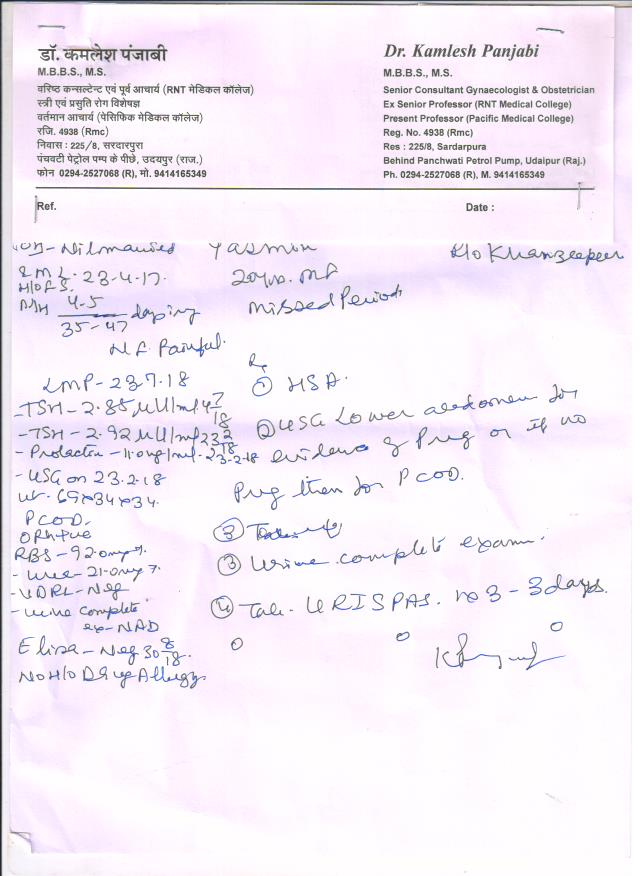 डॉ. कमलेश पंजाबी
M.B.B.S., M.S.
वरिष्ठ कन्सल्टेन्ट एवं पूर्व आचार्य (RNT मेडिकल कॉलेज)
स्त्री एवं प्रसुति रोग विशेषज्ञ
वर्तमान आचार्य (पेसिफिक मेडिकल कॉलेज)
रजि. 4938 (Rmc)
निवास : 225/8, सरदारपुरा
पंचवटी पेट्रोल पम्प के पीछे, उदयपुर (राज.)
फोन 0294-2527068 (R), मो. 9414165349
Dr. Kamlesh Panjabi
M.B.B.S., M.S.
Senior Consultant Gynaecologist & Obstetrician
Ex Senior Professor (RNT Medical College)
Present Professor (Pacific Medical College)
Reg. No. 4938 (Rmc)
Res : 225/8, Sardarpura
Behind Panchwati Petrol Pump, Udaipur (Raj.)
Ph. 0294-2527068 (R), M. 9414165349
Ref.
Date :
Yasmin
Missed Period
23-4-17
4-5
35-47 days
M.F. Painful.
LMP-23-7-18
-TSH-2.85
-TSH-2.92
-Prolactin 23-2-18
-USG on 23.2.18
ut- 69x34x34
PCOD.
RBS-92
-Urea-21
-VDRL-Neg
-Urine Complete
ex-NAD
Elisa-Neg 30 8/18
No H/O Drug Allergy
Rx
① HSA.
② USG Lower abdomen for
evidence of Preg or if no
Preg then for PCOD.
③ Urine complete exam.
④ Tab. URISPAS. 3-3days.